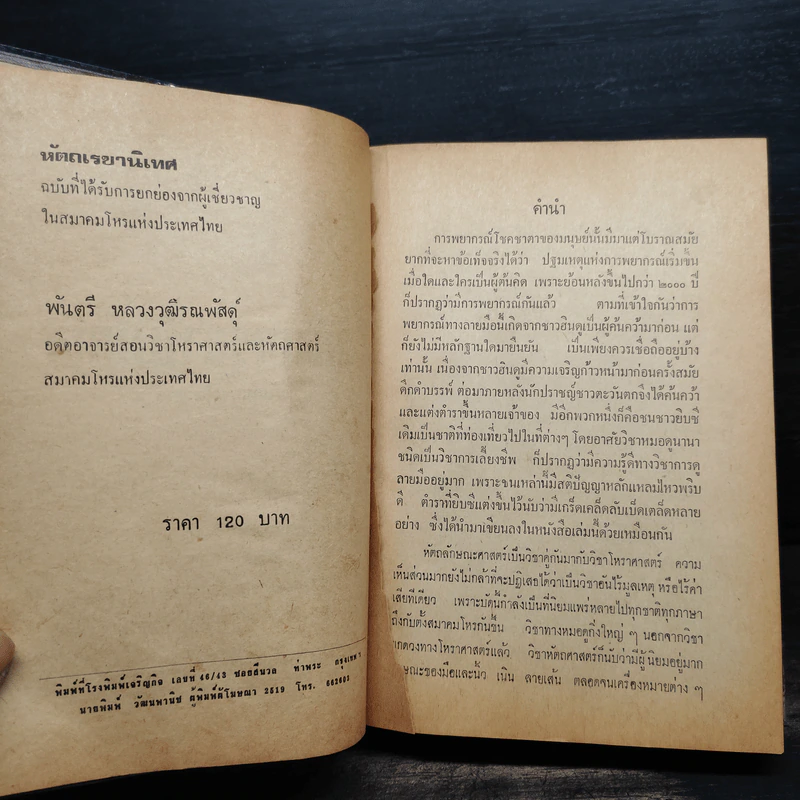 หัตถเรขานิเทศ
ฉบับที่ได้รับการยกย่องจากผู้เชี่ยวชาญ
ในสมาคมโหรแห่งประเทศไทย
พันตรี หลวงวุฒิรณพัสดุ์
อดีตอาจารย์สอนวิชาโหราศาสตร์และหัตถศาสตร์
สมาคมโหรแห่งประเทศไทย
ราคา 120 บาท
พิมพ์ที่โรงพิมพ์เจริญกิจ เลขที่ 46/43 ซอยสีนวล ท่าพระ กรุงเทพ ฯ
นายพิมพ์ วัฒนพานิช ผู้พิมพ์ผู้โฆษณา 2519 โทร.
คำนำ
การพยากรณ์โชคชาตาของมนุษย์นั้นมีมาแต่โบราณสมัย
ยากที่จะหาข้อเท็จจริงได้ว่า ปฐมเหตุแห่งการพยากรณ์เริ่มขึ้น
เมื่อใดและใครเป็นผู้ต้นคิด เพราะย้อนหลังขึ้นไปกว่า ๒๐๐๐ ปี
ก็ปรากฏว่ามีการพยากรณ์กันแล้ว ตามที่เข้าใจกันว่าการ
พยากรณ์ทางลายมือนี้เกิดจากชาวฮินดูเป็นผู้ค้นคว้ามาก่อน แต่
ก็ยังไม่มีหลักฐานใดมายืนยัน เป็นเพียงควรเชื่อถืออยู่บ้าง
เท่านั้น เนื่องจากชาวฮินดูมีความเจริญก้าวหน้ามาก่อนครั้งสมัย
ดึกดำบรรพ์ ต่อมาภายหลังนักปราชญ์ชาวตะวันตกจึงได้ค้นคว้า
และแต่งตำราขึ้นหลายเจ้าของ มีอีกพวกหนึ่งก็คือชนชาวยิบซี
เดิมเป็นชาติที่ท่องเที่ยวไปในที่ต่างๆ โดยอาศัยวิชาหมอดูนานา
ชนิดเป็นวิชาการเลี้ยงชีพ ก็ปรากฏว่ามีความรู้ดีทางวิชาการดู
ลายมืออยู่มาก เพราะชนเหล่านี้มีสติปัญญาหลักแหลมไหวพริบ
ดี ตำราที่ยิบซีแต่งขึ้นไว้นับว่ามีเกร็ดเคล็ดลับเบ็ดเตล็ดหลาย
อย่าง ซึ่งได้นำมาเขียนลงในหนังสือเล่มนี้ด้วยเหมือนกัน
หัตถลักษณะศาสตร์เป็นวิชาคู่กันมากับวิชาโหราศาสตร์ ความ
เห็นส่วนมากยังไม่กล้าที่จะปฏิเสธได้ว่าเป็นวิชาอันไร้มูลเหตุ หรือไร้ค่า
เสียทีเดียว เพราะบัดนี้กำลังเป็นที่นิยมแพร่หลายไปทุกชาติทุกภาษา
ถึงกับตั้งสมาคมโหรกันขึ้น วิชาทางหมอดูกิ่งใหญ่ ๆ นอกจากวิชา
กดวงทางโหราศาสตร์แล้ว วิชาหัตถศาสตร์ก็นับว่ามีผู้นิยมอยู่มาก
กษณะของมือและนิ้ว เนิน ลายเส้น ตลอดจนเครื่องหมายต่าง ๆ